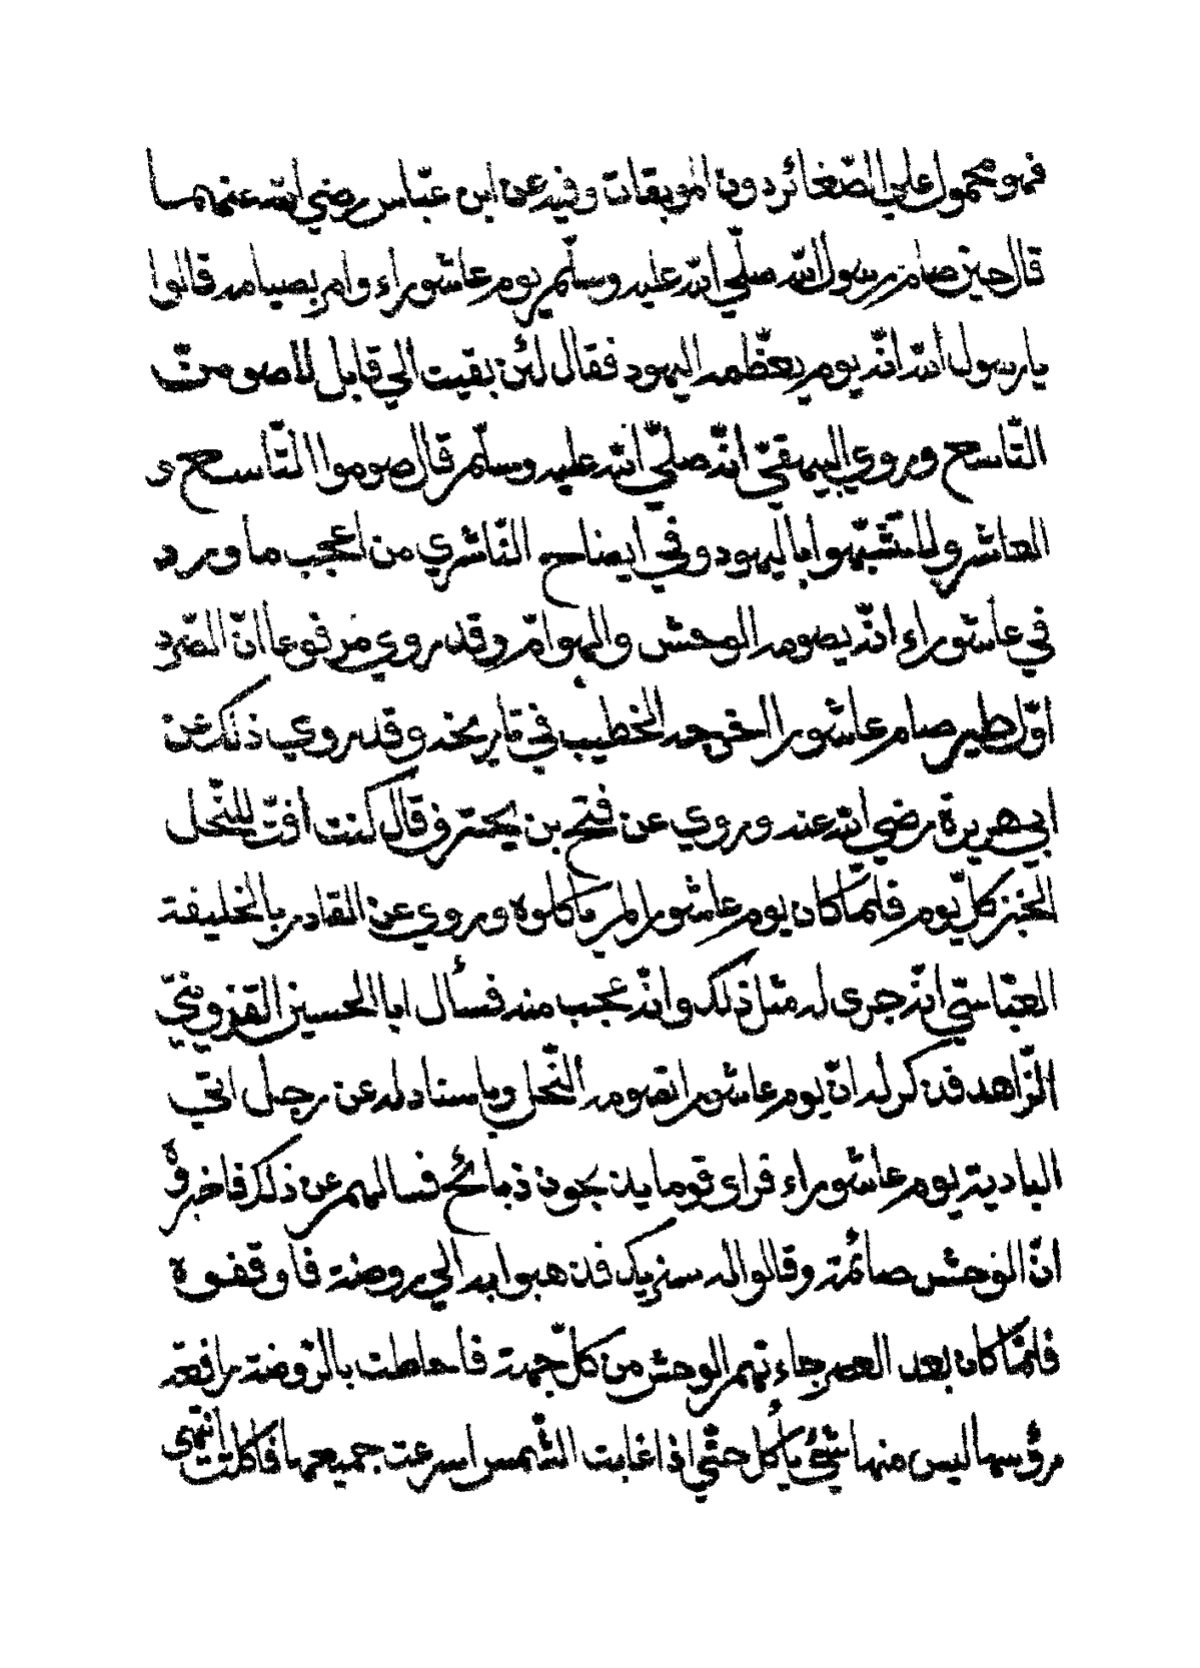 فهو محمول علي الصّغائر دون الموبقات وفيه عن ابن عبّاس رضي الله عنهما
قال حين صام رسول الله صلّي الله عليه وسلّم يوم عاشوراء وامر بصيامه قالوا
يا رسول الله انّه يوم يعظّمه اليهود فقال لئن بقيت الي قابل لاصومنّ
التّاسع وروي البيهقيّ انّه صلّي الله عليه وسلّم قال صوموا التّاسع و
العاشر ولا تشبّهوا باليهود وفي ايضاح النّاشري من اعجب ما ورد
في عاشوراء انّه يصومه الوحش والهوامّ وقد روي مرفوعا انّ الصّرد
اوّل طير صام عاشورا اخرجه الخطيب في تاريخه وقد روي ذلك عن
ابي هريرة رضي الله عنه وروي عن فتح بن يحترف قال كنت افتّ للنّحل
الخبز كلّ يوم فلمّا كان يوم عاشورا لم ياكلوه وروي عن القادر بالخليفة
العبّاسيّ انّه جري له مثل ذلك وانّه عجب منه فسأل ابا الحسين القزوينيّ
الزّاهد فذكر له انّ يوم عاشورا تصومه النّحل وباسناد له عن رجل اتي
البادية يوم عاشوراء فراي قوما يذبحون ذبائح فسالهم عن ذلك فاخبروه
انّ الوحش صائمة وقالوا له سنريك فذهبوا به الي روضة فاوقفوه
فلمّا كان بعد العصر جاءتهم الوحش من كلّ جهة فاحاطت بالرّوضة رافعة
رؤسها ليس منها شيئ يأكل حتّي اذا غابت الشّمس اسرعت جميعها فاكلت انتهي